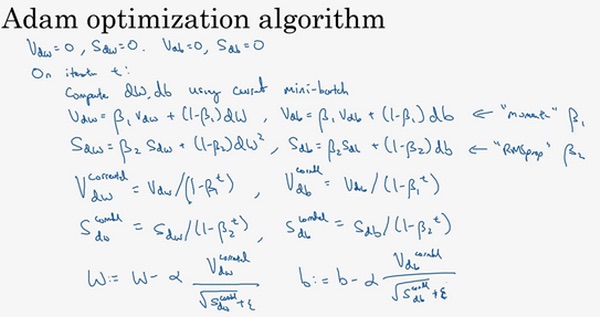 Adam optimization algorithm
V_dw = 0, S_dw = 0. V_db = 0, S_db = 0
On iteration t:
Compute dW, db using current mini-batch
V_dw = β₁ V_dw + (1-β₁) dW, V_db = β₁ V_db + (1-β₁) db ← "momentum" β₁
S_dw = β₂ S_dw + (1-β₂) dW², S_db = β₂ S_db + (1-β₂) db ← "RMSprop" β₂
V_dw^corrected = V_dw/(1-β₁^t), V_db^corrected = V_db/(1-β₁^t)
S_dw^corrected = S_dw/(1-β₂^t), S_db^corrected = S_db/(1-β₂^t)
W := W - α V_dw^corrected/(√S_dw^corrected + ε) b := b - α V_db^corrected/(√S_db^corrected + ε)